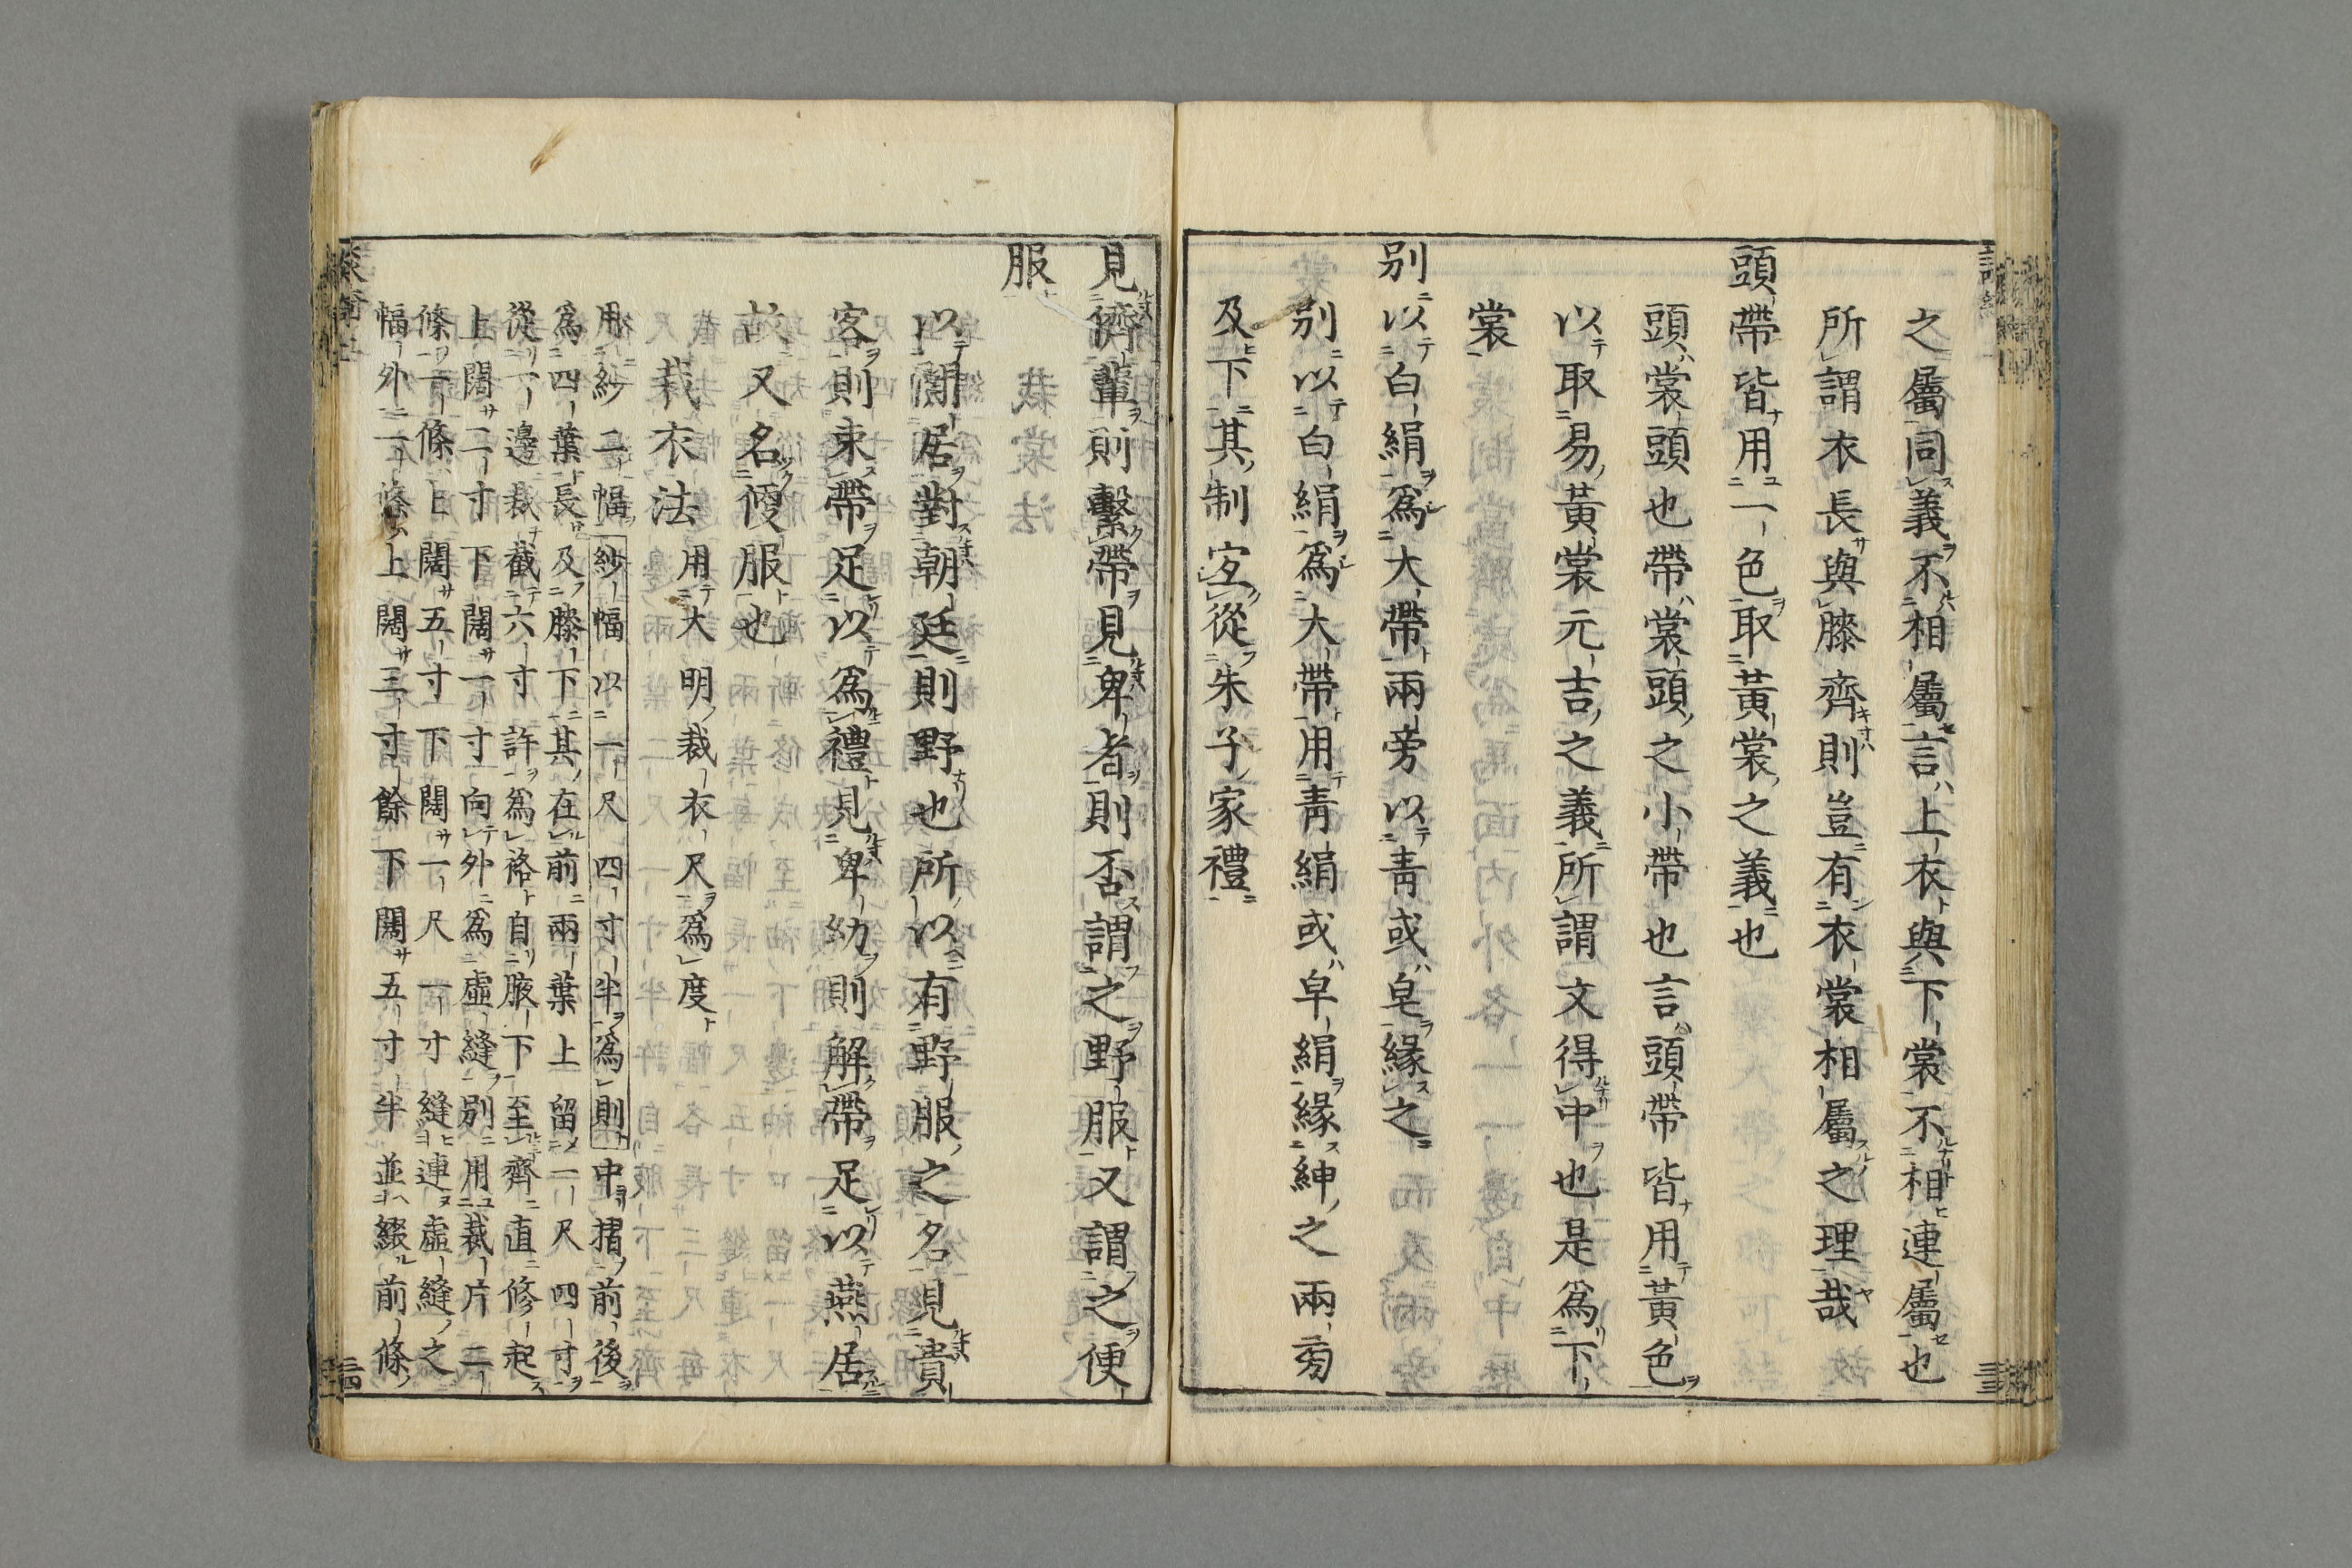 之屬同義不相屬言上衣與下裳不相連屬也
所謂衣長與膝齊則豈有衣裳相屬之理哉
頭帶皆用一色取黃裳之義也
頭裳頭也帶裳頭之小帶也言頭帶皆用黃色
以取易黃裳元吉之義所謂文得中也是爲下
裳
別以白絹爲大帶兩旁以靑或皂緣之
別以白絹爲大帶用靑絹或皁絹緣紳之兩旁
及下其制定從朱子家禮
見儕輩則繫帶見卑者則否謂之野服又謂之便
服
以閒居對朝廷則野也所以有野服之名見貴
客則束帶足以爲禮見卑幼則解帶足以燕居
故又名便服也
裁衣法 用大明裁衣尺爲度
用紗二幅 紗幅以一尺四寸半爲則 中摺前後
爲四葉長及膝下其在前兩葉上留二尺四寸
從一邊裁截六寸許爲袼自腋下至齊直修起
上闊二寸下闊一寸向外爲虛縫別用裁片二
條一條上闊五寸下闊一尺一寸縫連虛縫之
幅外一條上闊三寸餘下闊五寸半並綴前條